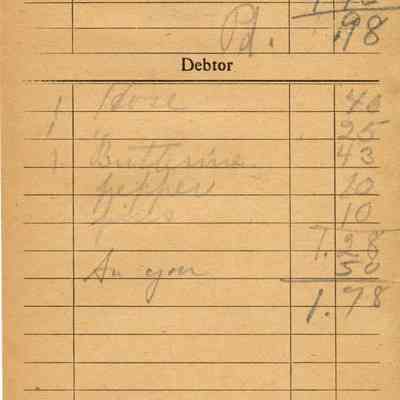 Pd. .98
Debtor
1 Hose 40
1 " 25
1 Butterine 43
pepper 10
10
1.28
50
1.78